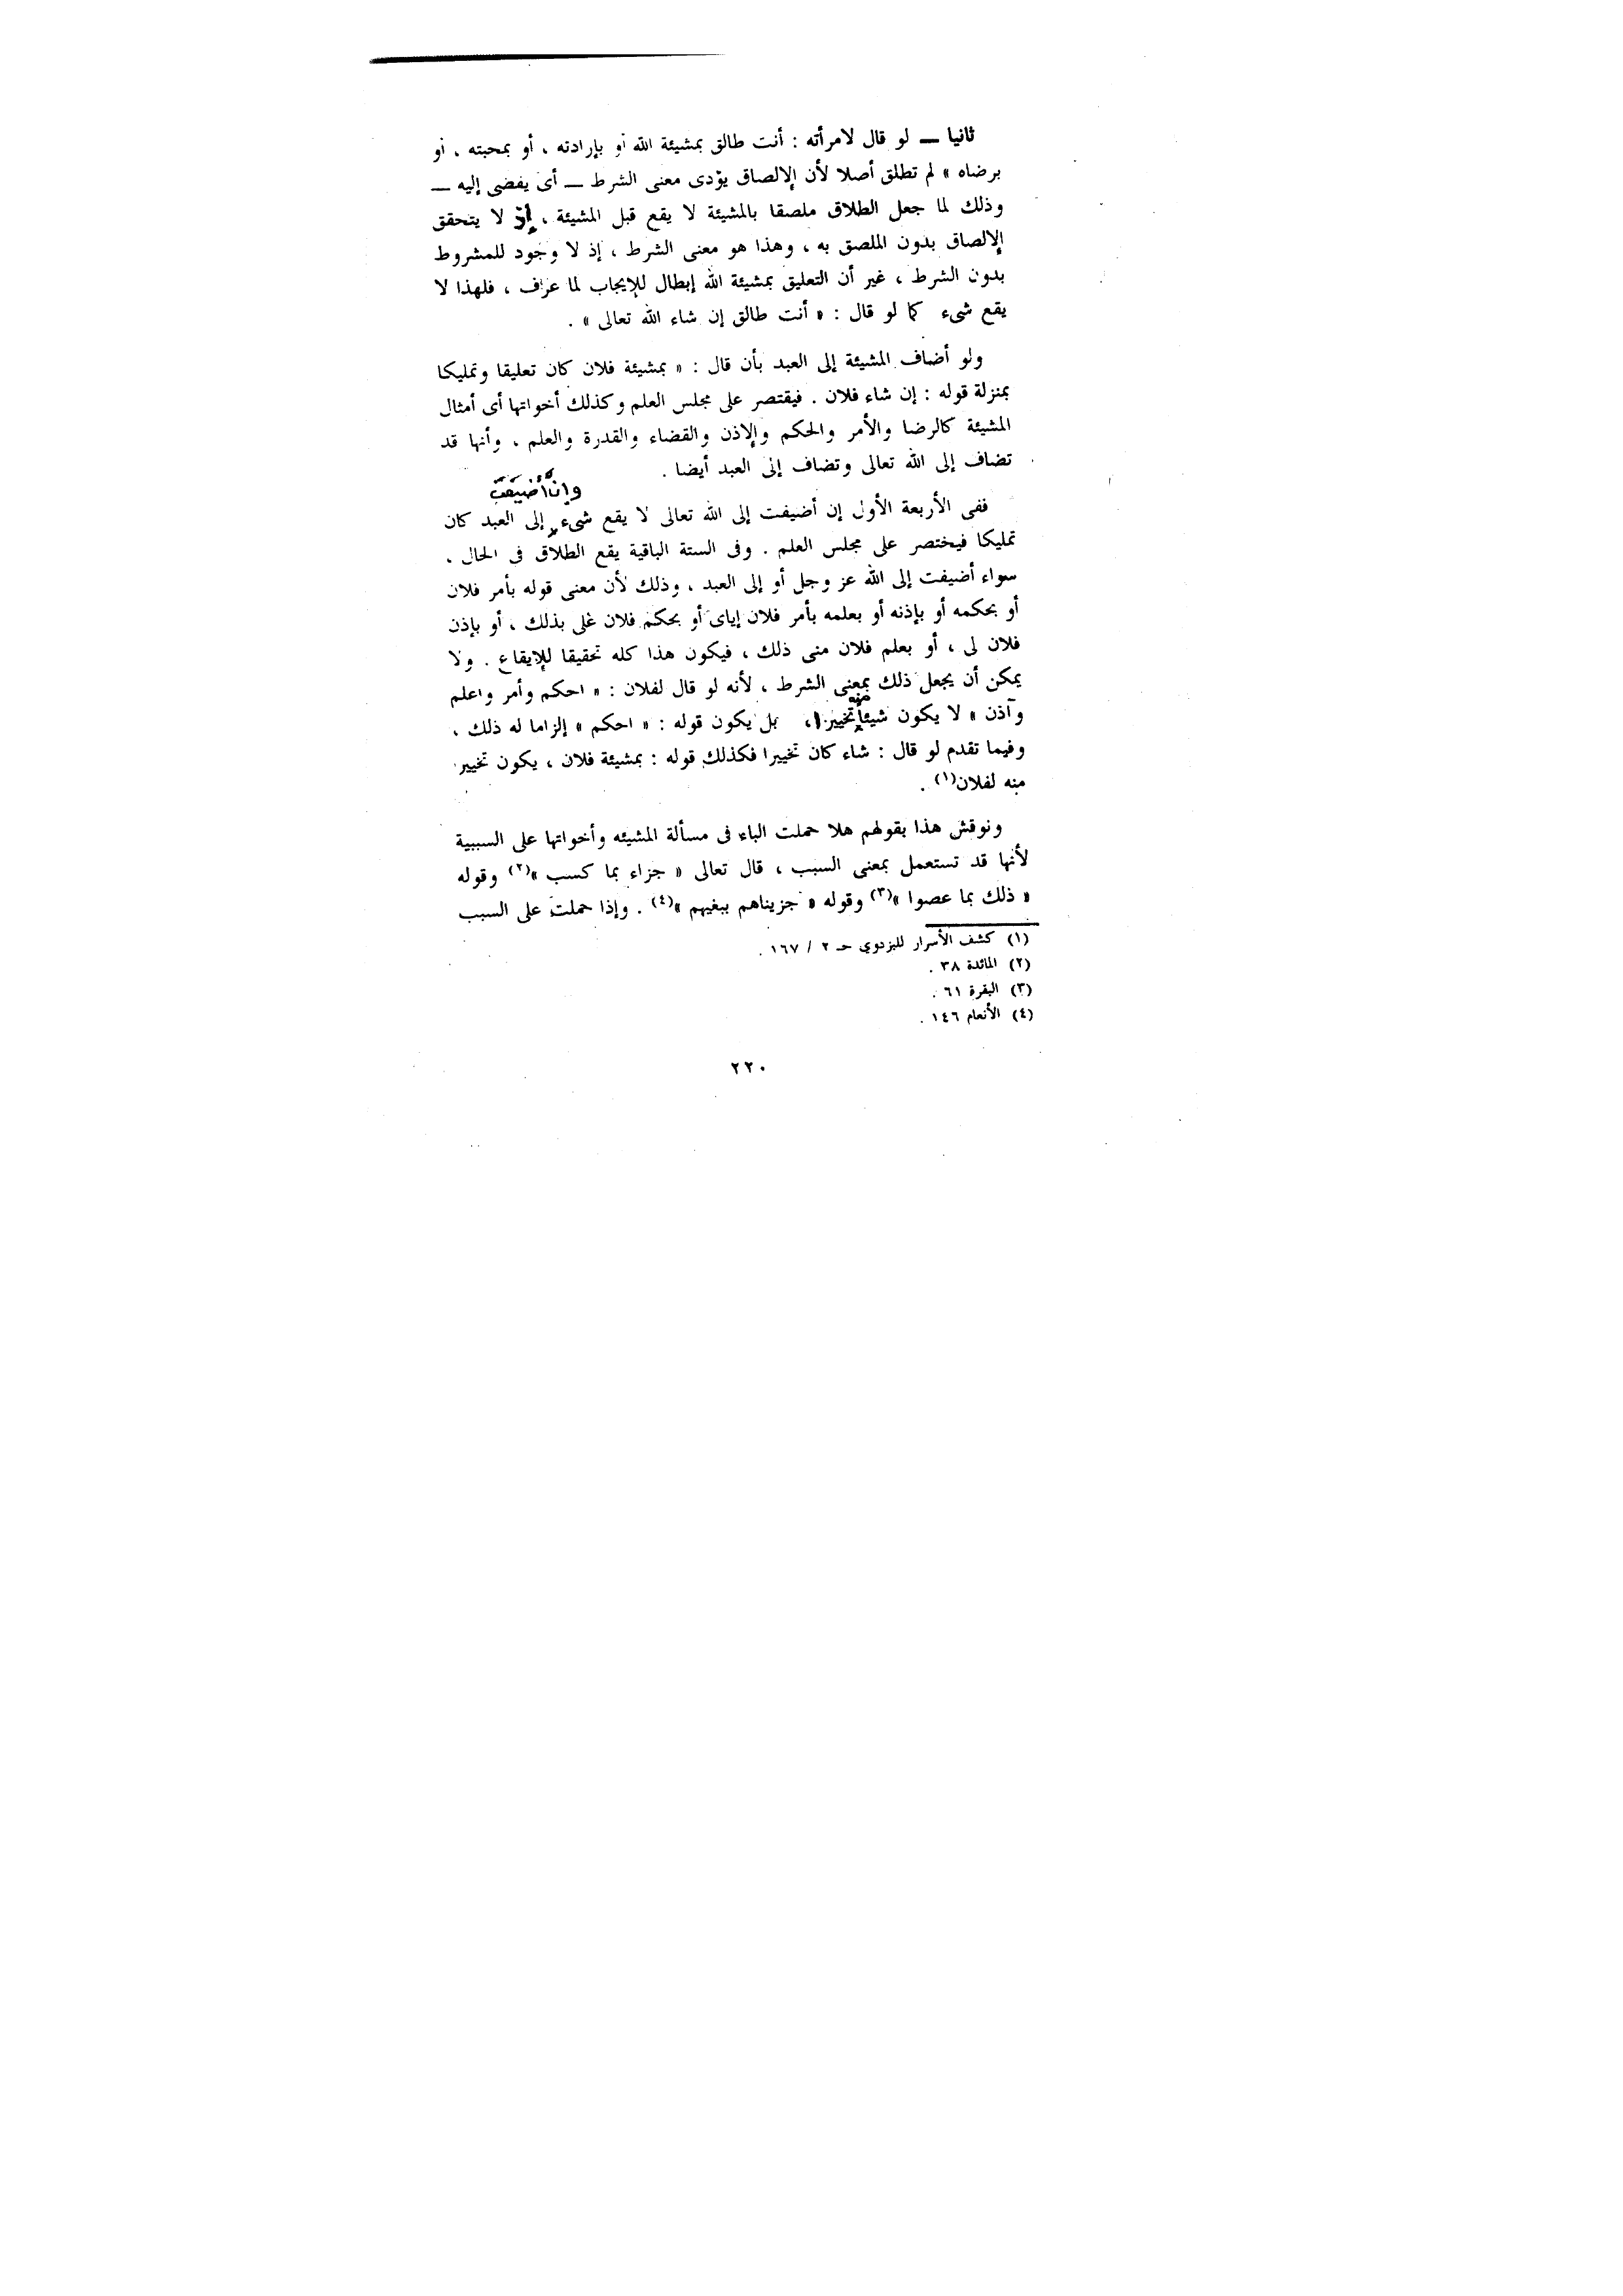 ثانيا — لو قال لامرأته : أنت طالق بمشيئة الله أو بإرادته ، أو بمحبته ، أو
برضاه » لم تطلق أصلا لأن الإلصاق يؤدى معنى الشرط — أى يفضى إليه —
وذلك لما جعل الطلاق ملصقا بالمشيئة لا يقع قبل المشيئة ، إذ لا يتحقق
الإلصاق بدون الملصق به ، وهذا هو معنى الشرط ، إذ لا وجود للمشروط
بدون الشرط ، غير أن التعليق بمشيئة الله إبطال للإيجاب لما عرف ، فلهذا لا
يقع شىء كما لو قال : « أنت طالق إن شاء الله تعالى » .
ولو أضاف المشيئة إلى العبد بأن قال : « بمشيئة فلان كان تعليقا وتمليكا
بمنزلة قوله : إن شاء فلان . فيقتصر على مجلس العلم وكذلك أخواتها أى أمثال
المشيئة كالرضا والأمر والحكم والإذن والقضاء والقدرة والعلم ، وأنها قد
تضاف إلى الله تعالى وتضاف إلى العبد أيضا .
وإن أضيفت
ففى الأربعة الأول إن أضيفت إلى الله تعالى لا يقع شىء إلى العبد كان
تمليكا فيختصر على مجلس العلم . وفى الستة الباقية يقع الطلاق فى الحال ،
سواء أضيفت إلى الله عز وجل أو إلى العبد ، وذلك لأن معنى قوله بأمر فلان
أو بحكمه أو بإذنه أو بعلمه بأمر فلان إياى أو بحكم فلان على بذلك ، أو بإذن
فلان لى ، أو بعلم فلان منى ذلك ، فيكون هذا كله تحقيقا للإيقاع . ولا
يمكن أن يجعل ذلك بمعنى الشرط ، لأنه لو قال لفلان : « احكم وأمر واعلم
منه
وآذن » لا يكون شيئا تخييرا ، بل يكون قوله : « احكم » إلزاما له ذلك ،
وفيما تقدم لو قال : شاء كان تخييرا فكذلك قوله : بمشيئة فلان ، يكون تخيير
منه لفلان(١) .
ونوقش هذا بقولهم هلا حملت الباء فى مسألة المشيئه وأخواتها على السببية
لأنها قد تستعمل بمعنى السبب ، قال تعالى « جزاء بما كسب »(٢) وقوله
« ذلك بما عصوا »(٣) وقوله « جزيناهم ببغيهم »(٤) . وإذا حملت على السبب
(١) كشف الأسرار للبزدوي حـ ٢ / ١٦٧ .
(٢) المائدة ٣٨ .
(٣) البقرة ٦١ .
(٤) الأنعام ١٤٦ .
٢٢٠